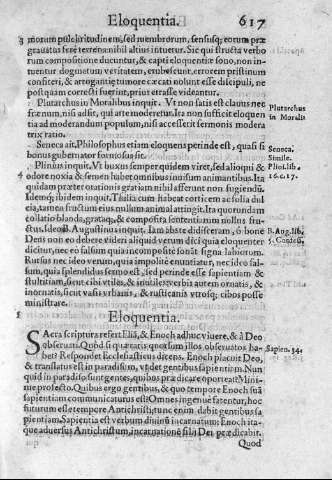 Eloquentia. 617
3 morum pulchritudinem, sed membrorum, sensusq; eorum præ
grauatus ferè terrena nihil altius intuetur. Sic qui structa verbo
rum compositione ducuntur, & capti eloquentiæ sono, non in-
uentur dogmatum veritatem, erubescunt, errorem pristinum
confiteri, & arrogantiæ tumore cæcati nolunt esse discipuli, ne
post quàm correcti fuerint, prius errasse videantur.
Plutarchus in Moralibus inquit. Vt non satis est clauus nec
frænum, nisi adsit, qui arte moderetur. Ita non sufficit eloquen
tia ad moderandum populum, nisi accesserit sermonis modera
trix ratio.
Plutarchus
in Morali
Seneca ait. Philosophus etiam eloquens perinde est, quasi si
bonus gubernator formosus sit.
Seneca.
Simile.
Plinius inquit. Vt buxus semper quidem viret, sed alioqui &
4 odore noxia & semen habet omnibus inuisum animantibus. Ita
quidam præter orationis gratiam nihil afferunt non fugiendū.
Plin. lib.
16. c. 17.
Idemq; ibidem inquit. Tilia cum habeat corticem ac folia dul
cia, tamen fructum eius nullum animal attingit. Ita quorundam
collatio blanda, grataq; & composita sententiarum nullus fru-
ctus. Ideo B. Augustinus inquit. Iam abste didiceram, ô bone
Deus non eo debere videri aliquid verum dici quia eloquenter
dicitur, nec eo falsum quia incompositè sonāt signa labiorum.
B. Aug. lib.
5. Confess.
Rursus nec ideo verum, quia impolitè enuntiatur, nec ideo fal-
sum, quia splendidus sermo est, sed perinde esse sapientiam &
stultitiam, sicut cibi vtiles, & inutiles: verbis autem ornatis, &
inornatis, sicut vasis vrbanis, & rusticanis vtrosq; cibos posse
ministrare.
Eloquentia.
1 SAcra scriptura refert Eliā, & Enoch adhuc viuere, & à Deo
obseruari. Quod si quæratis quorsum illos obseruatos ha-
bet? Respondet Ecclesiasticus dicens. Enoch placuit Deo,
& translatus est in paradisum, vt det gentibus sapientiam. Nun
quid in paradiso sunt gentes, quibus prædicare oporteat? Mini-
Sapien. 34.
mè profecto. Quibus ergo gentibus, & quo tempore Enoch suā
sapientiam communicaturus est? Omnes ingenuè fatentur, hoc
futurum esse tempore Antichristi, tunc enim dabit gentibus sa
pientiam. Sapientia est verbum diuinū incarnatum: Enoch ita-
que aduersus Antichristum, incarnationē filii Dei prædicabit.
Quod